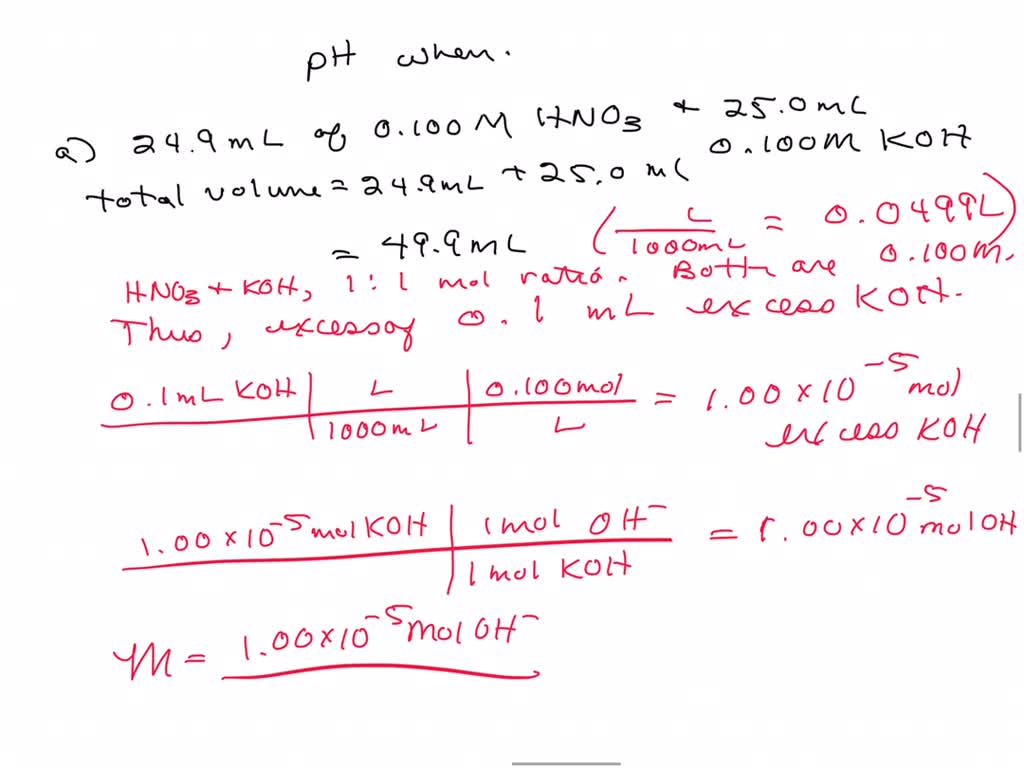 pH when.
a) 24.9 mL of 0.100 M HNO3 + 25.0 mL
0.100 M KOH
total volume = 24.9 mL + 25.0 mL
= 49.9 mL ( L / 1000 mL = 0.0499 L )
HNO3 + KOH, 1:1 mol ratio. Both are 0.100 M.
Thus, excess of 0.1 mL excess KOH.
0.1 mL KOH | L | 0.100 mol = 1.00 × 10^-5 mol
1000 mL | L excess KOH
1.00 × 10^-5 mol KOH | 1 mol OH^- = 1.00 × 10^-5 mol OH
1 mol KOH
M = 1.00 × 10^-5 mol OH^-